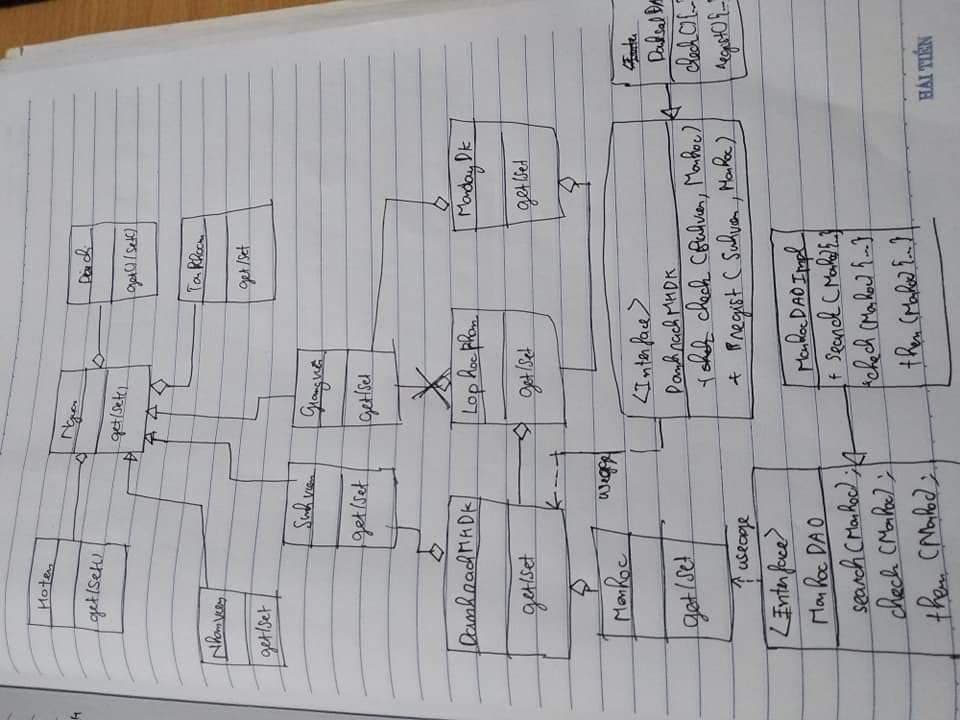 Hoten
get/Set()
Nguoi
get/Set()
Diachi
get()/Set()
Nhanvien
get/Set
TaiKhoan
get/Set
Sinhvien
get/Set
Giangvien
get/Set
DanhsachMHDK
get/Set
LophocPhan
get/Set
MondayDK
get/Set
useage
Monhoc
get/Set
useage
<Interface>
DanhsachMHDK
+ check (Sinhvien, Monhoc)
+ regist (Sinhvien, Monhoc)
check(){...}
regist(){...}
<Interface>
MonhocDAO
search(Monhoc);
check (Monhoc);
them (Monhoc);
MonhocDAOImpl
+ search (Monhoc){...}
+check (Monhoc) {...}
them (Monhoc) {...}
HẢI TIẾN